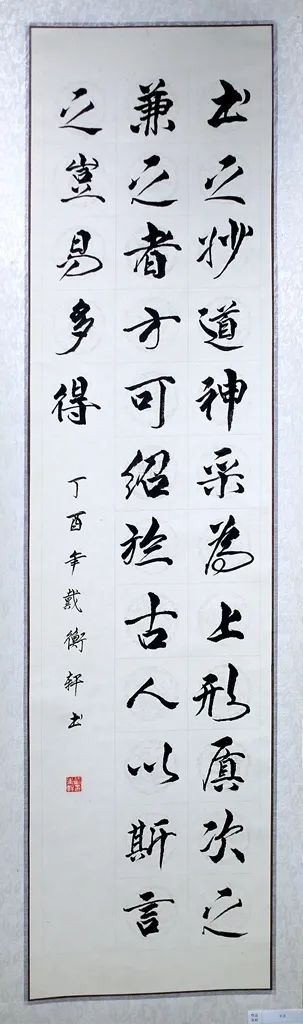 书之妙道神采為上形质次之
兼之者方可紹於古人以斯言
之豈易多得
丁酉年戴衡軒书